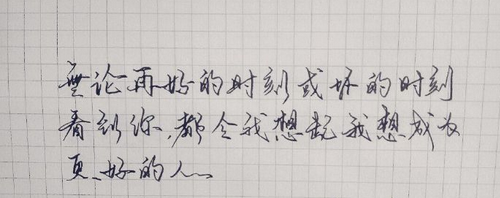 無论再好的时刻或坏的时刻
看到你,都令我想起我想成为
更好的人